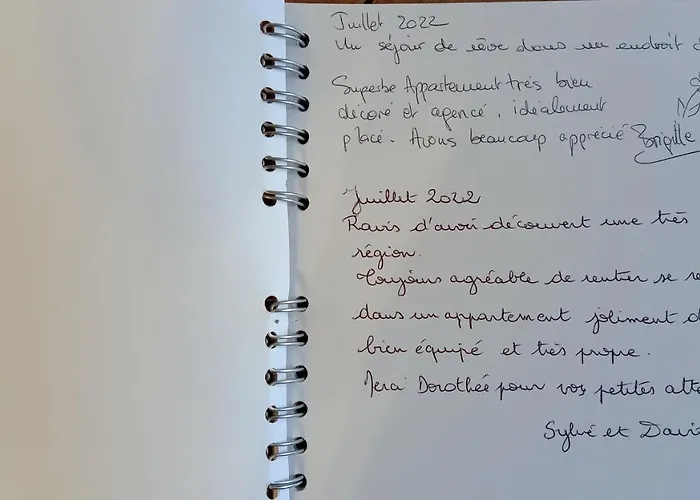 Juillet 2022
Un séjour de rêve dans un endroit
Superbe Appartement très bien
décoré et agencé, idéalement
placé. Avons beaucoup apprécié Brigitte
Juillet 2022
Ravis d'avoir découvert une très
région.
Toujours agréable de rentrer se
dans un appartement joliment
bien équipé et très propre.
Merci Dorothée pour vos petites atte
Sylvie et Davi